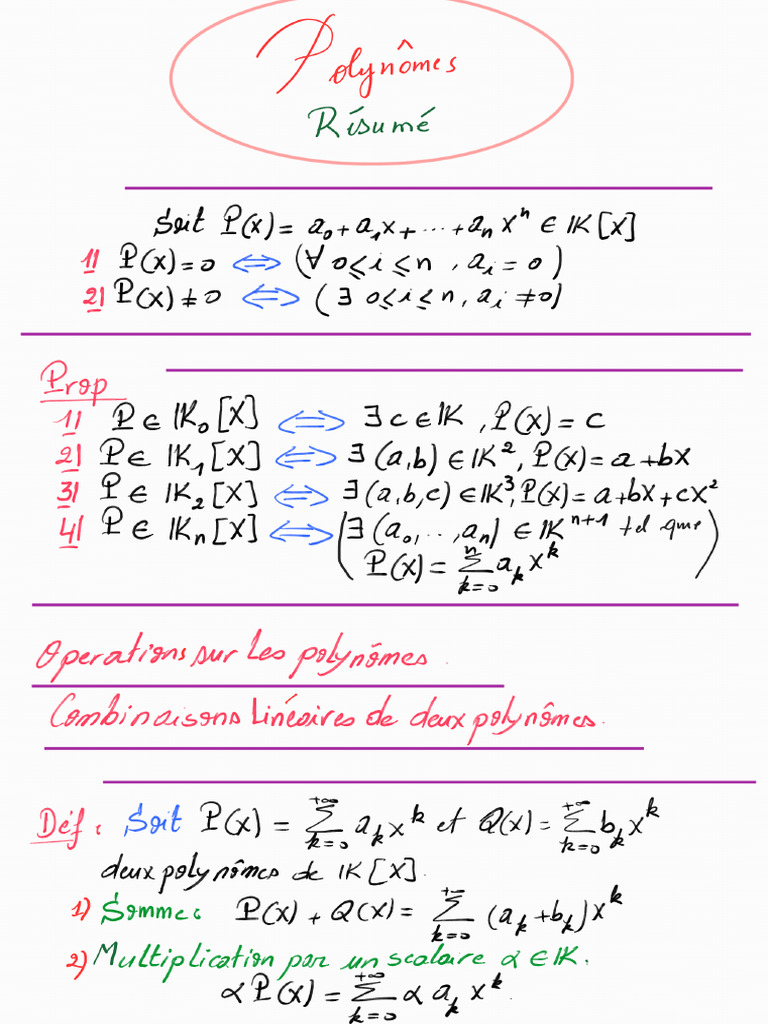 Polynômes
Résumé
Soit P(X) = a₀ + a₁X + ... + aₙXⁿ ∈ IK[X]
1) P(X) = 0 ⟺ (∀ 0 ≤ i ≤ n, aᵢ = 0)
2) P(X) ≠ 0 ⟺ (∃ 0 ≤ i ≤ n, aᵢ ≠ 0)
Prop
1) P ∈ IK₀[X] ⟺ ∃ c ∈ IK, P(X) = c
2) P ∈ IK₁[X] ⟺ ∃ (a,b) ∈ IK², P(X) = a + bX
3) P ∈ IK₂[X] ⟺ ∃ (a,b,c) ∈ IK³, P(X) = a + bX + cX²
4) P ∈ IKₙ[X] ⟺ (∃ (a₀,...,aₙ) ∈ IKⁿ⁺¹ tel que
P(X) = ∑_{k=0}^{n} aₖXᵏ)
Operations sur les polynômes.
Combinaisons Linéaires de deux polynômes.
Déf : Soit P(X) = ∑_{k=0}^{+∞} aₖXᵏ et Q(X) = ∑_{k=0}^{+∞} bₖXᵏ
deux polynômes de IK[X].
1) Somme : P(X) + Q(X) = ∑_{k=0}^{+∞} (aₖ + bₖ)Xᵏ
2) Multiplication par un scalaire α ∈ IK.
αP(X) = ∑_{k=0}^{+∞} α aₖ Xᵏ.